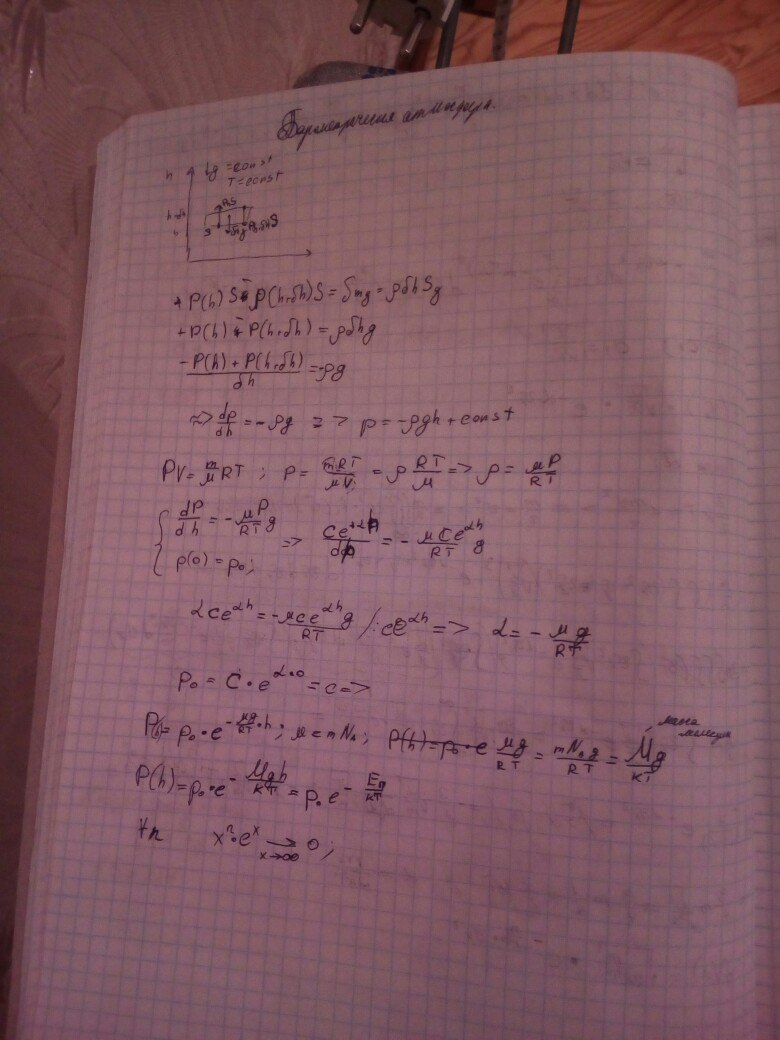 Барометрическая атмосфера.
h g = const
T = const
h+δh PS
h S δmg P(h+δh)S
+ P(h)S - P(h+δh)S = δmg = ρδhSg
+P(h) - P(h+δh) = ρδhg
(-P(h) + P(h+δh))/δh = -ρg
≈> dp/dh = -ρg => p = -ρgh + const
PV = m/μ RT ; P = mRT/μV = ρ RT/μ => ρ = μP/RT
{ dP/dh = - μP/RT g
p(0) = p₀; => Ce^{+αh}/dh = - μCe^{αh}/RT g
αCe^{αh} = -μCe^{αh}g/RT /:Ce^{αh} => α = - μg/RT
p₀ = C·e^{α·0} = c =>
P(h) = p₀·e^{-μg/RT·h} ; μ = mN_A ; P(h) = p₀·e μg/RT = mN_A g/RT = Mg/kT масса молекулы
P(h) = p₀·e^{-Mgh/kT} = p₀e^{-Eп/kT}
∀n x^n·e^x → 0 ; x→∞